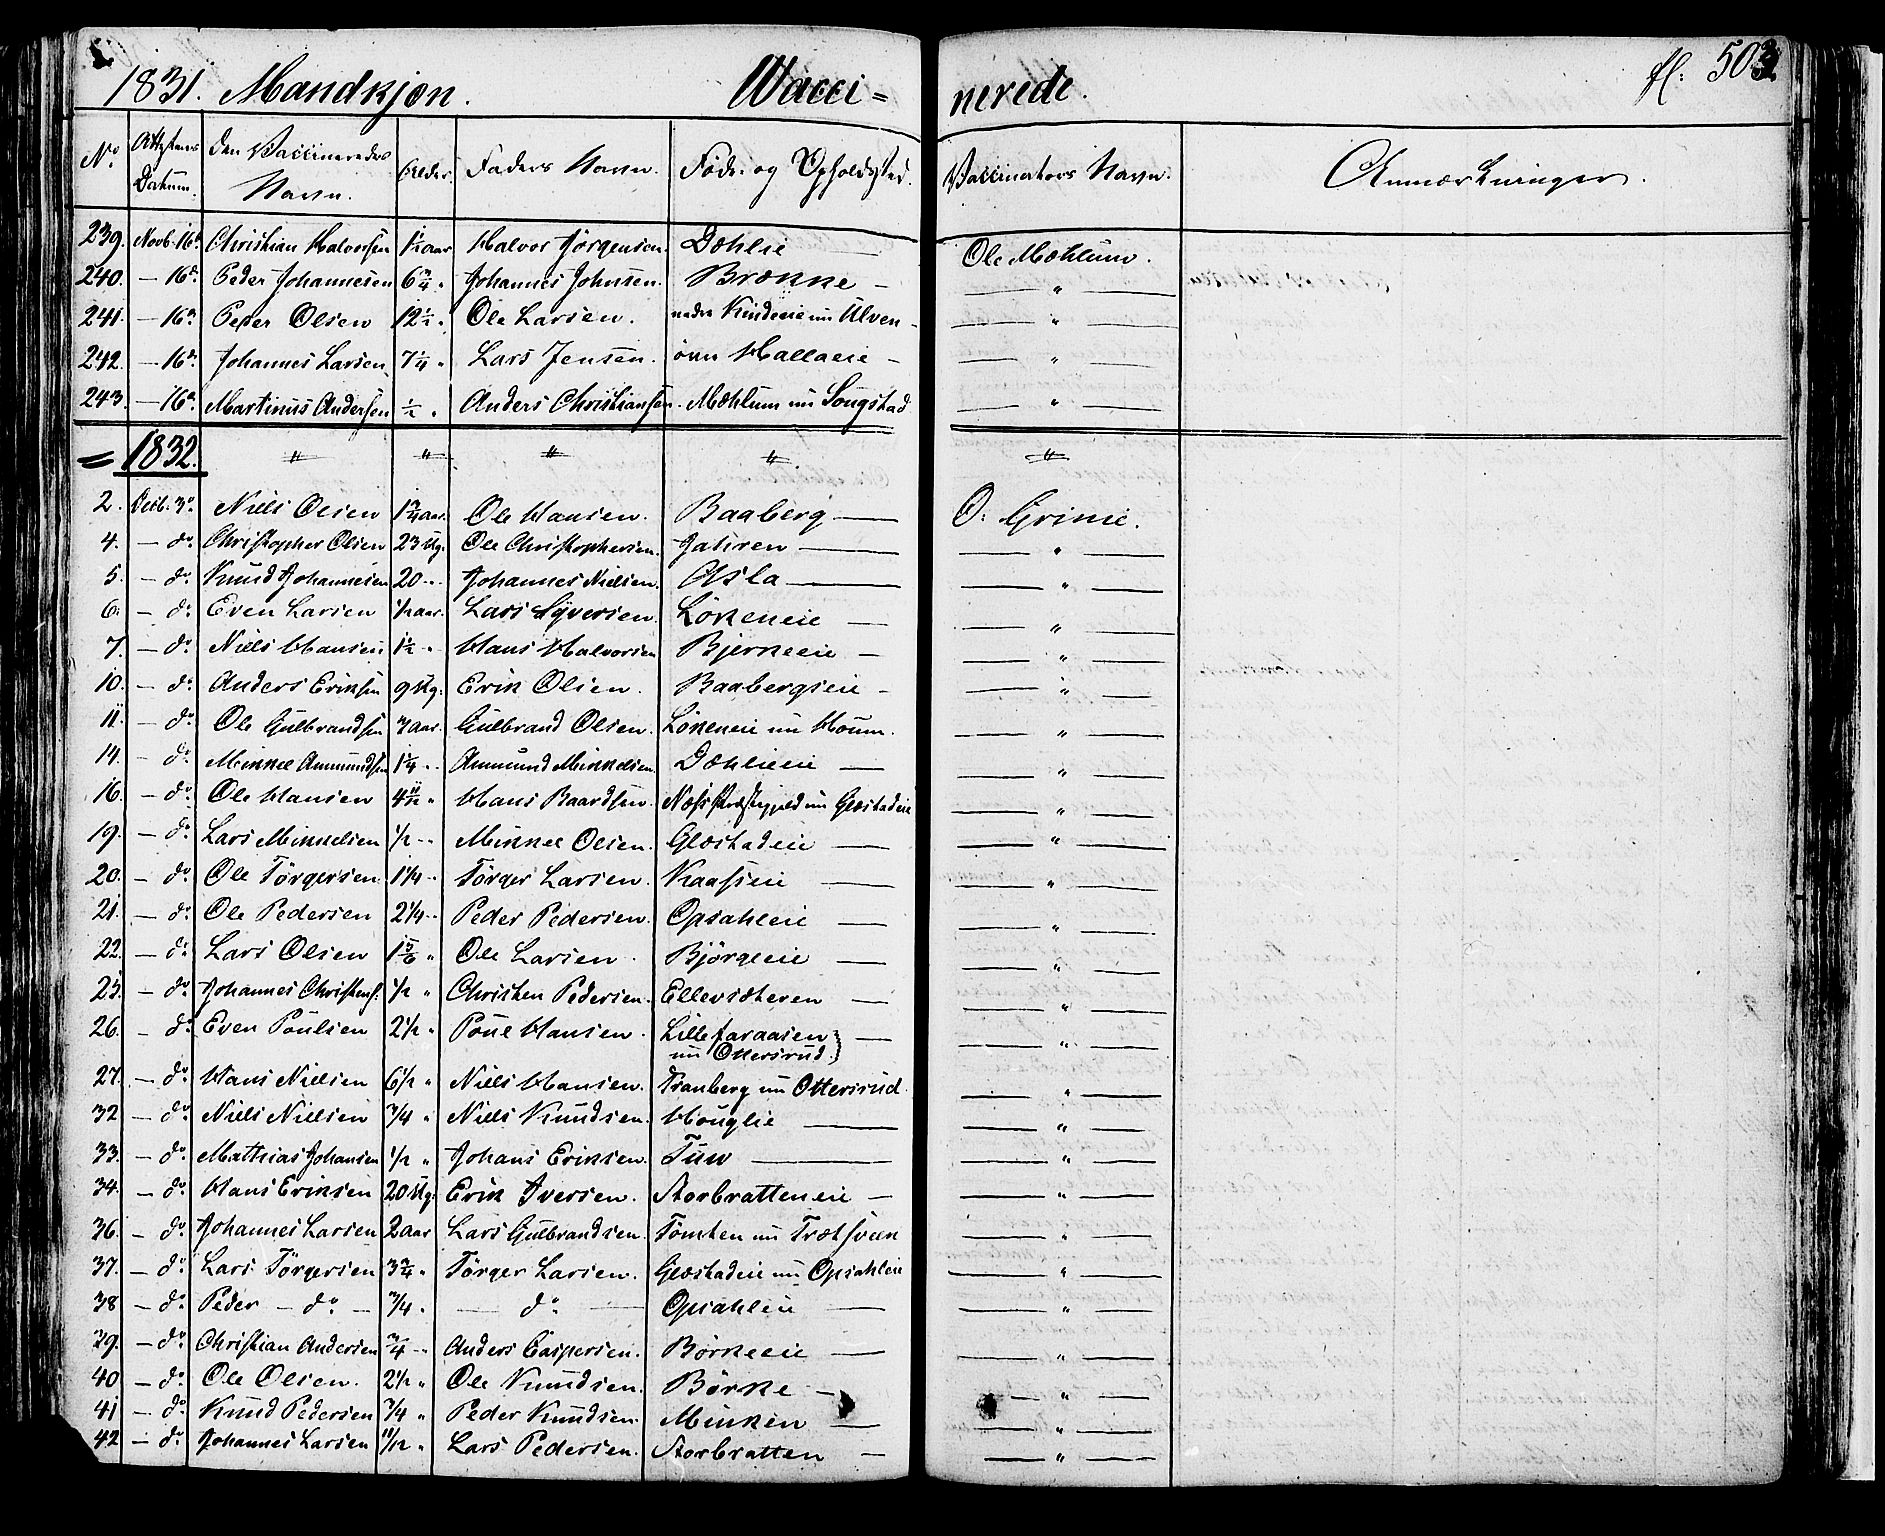 1831. Mandkjøn. Wacci= nerede. fl: 503
No. Attestens Datum. Den Vaccineredes Navn. Alder. Faders Navn. Føde- og Opholdssted. Vaccinators Navn. Anmærkninger.
239. Novb. 16de Christian Halvorsen 1 1/2 aar Halvor Jørgensen. Dæhlie Ole Mæhlum.
240. — 16de Peder Johannesen 6 3/4 " Johannes Johnsen. Brænne — — " —
241. — 16de Peder Olsen 12 1/2 " Ole Larsen. nedre Kindeeie nu Ulven — — " —
242. — 16de Johannes Larsen 7 1/4 " Lars Jensen. övre Hallaeie — — " —
243. — 16de Martinus Andersen 1/2 " Anders Christiansen. Mæhlum nu Songstad — " —
= 1832. " " " " "
2. Decb. 3de Niels Olsen 1 3/4 aar. Ole Hansen. Baaberg — O: Grime.
4. — do. Christopher Olsen 23 Ug. Ole Christophersen. Jahren — — " —
5. — do. Knud Johannesen 20 -- Johannes Nielsen. Asla — — " —
6. — do. Even Larsen 1/2 aar. Lars Syversen. Lökeneie — — " —
7. — do. Niels Hansen 1 1/2 -- Hans Halvorsen Bjerkeeie — — " —
10. — do. Anders Eriksen 9 Ug. Erik Olsen. Baabergseie — — " —
11. — do. Ole Gulbrandsen 3 aar. Gulbrand Olsen. Lökeneie nu Houm. — " —
14. — do. Mikkel Ammundsen 1 1/4 -- Ammund Mikkelsen. Dæhlieeie — — " —
16. — do. Ole Hansen 4 11/12 " Hans Baardsen. Næss Præstegjeld nu Glæstadeie — " —
19. — do. Lars Mikkelsen 1/2 -- Mikkel Olsen. Glæstadeie — — " —
20. — do. Ole Törgersen. 1 1/4 -- Törger Larsen. Kaasseie — — " —
21. — do. Ole Pedersen 2 1/4 -- Peder Pedersen. Opsahleie — — " —
22. — do. Lars Olsen 1 5/6 " Ole Larsen. Björgeeie — — " —
25. — do. Johannes Christens. 1/2 " Christen Pedersen. Ellevsæteren — — " —
26. — do. Even Poulsen 2 1/2 " Poul Hansen. Lillefaraasen — — " —
nu Ottersrud.
27. — do. Hans Nielsen 6 1/2 " Niels Hansen. Tranberg nu Ottersrud. — " —
32 — do. Niels Nielsen 3/4 " Niels Knudsen. Houglie — — " —
33. — do. Mathias Johansen 1/2 " Johans Eriksen. Tuw — — " —
34. — do. Hans Eriksen 20 Ug. Erik Iversen. Storbratteneie — — " —
36. — do. Johannes Larsen 2 aar Lars Gulbrandsen. Tomten nu Trætsveen — " —
37. — do. Lars Törgersen 3 3/4 " Törger Larsen. Glæstadeie nu Opsahleie — " —
38 — do. Peder — do. — 3/4 " — do. — Opsahleie — — " —
39. — do. Christian Andersen 3/4 -- Anders Caspersen. Börkeeie — — " —
40 — do. Ole Olsen. 2 1/2 " Ole Knudsen. Börke — — " —
41 — do. Knud Pedersen 3/4 " Peder Knudsen. Meiken — — " —
42 — do. Johannes Larsen 11/12 " Lars Pedersen. Storbratten — — " —